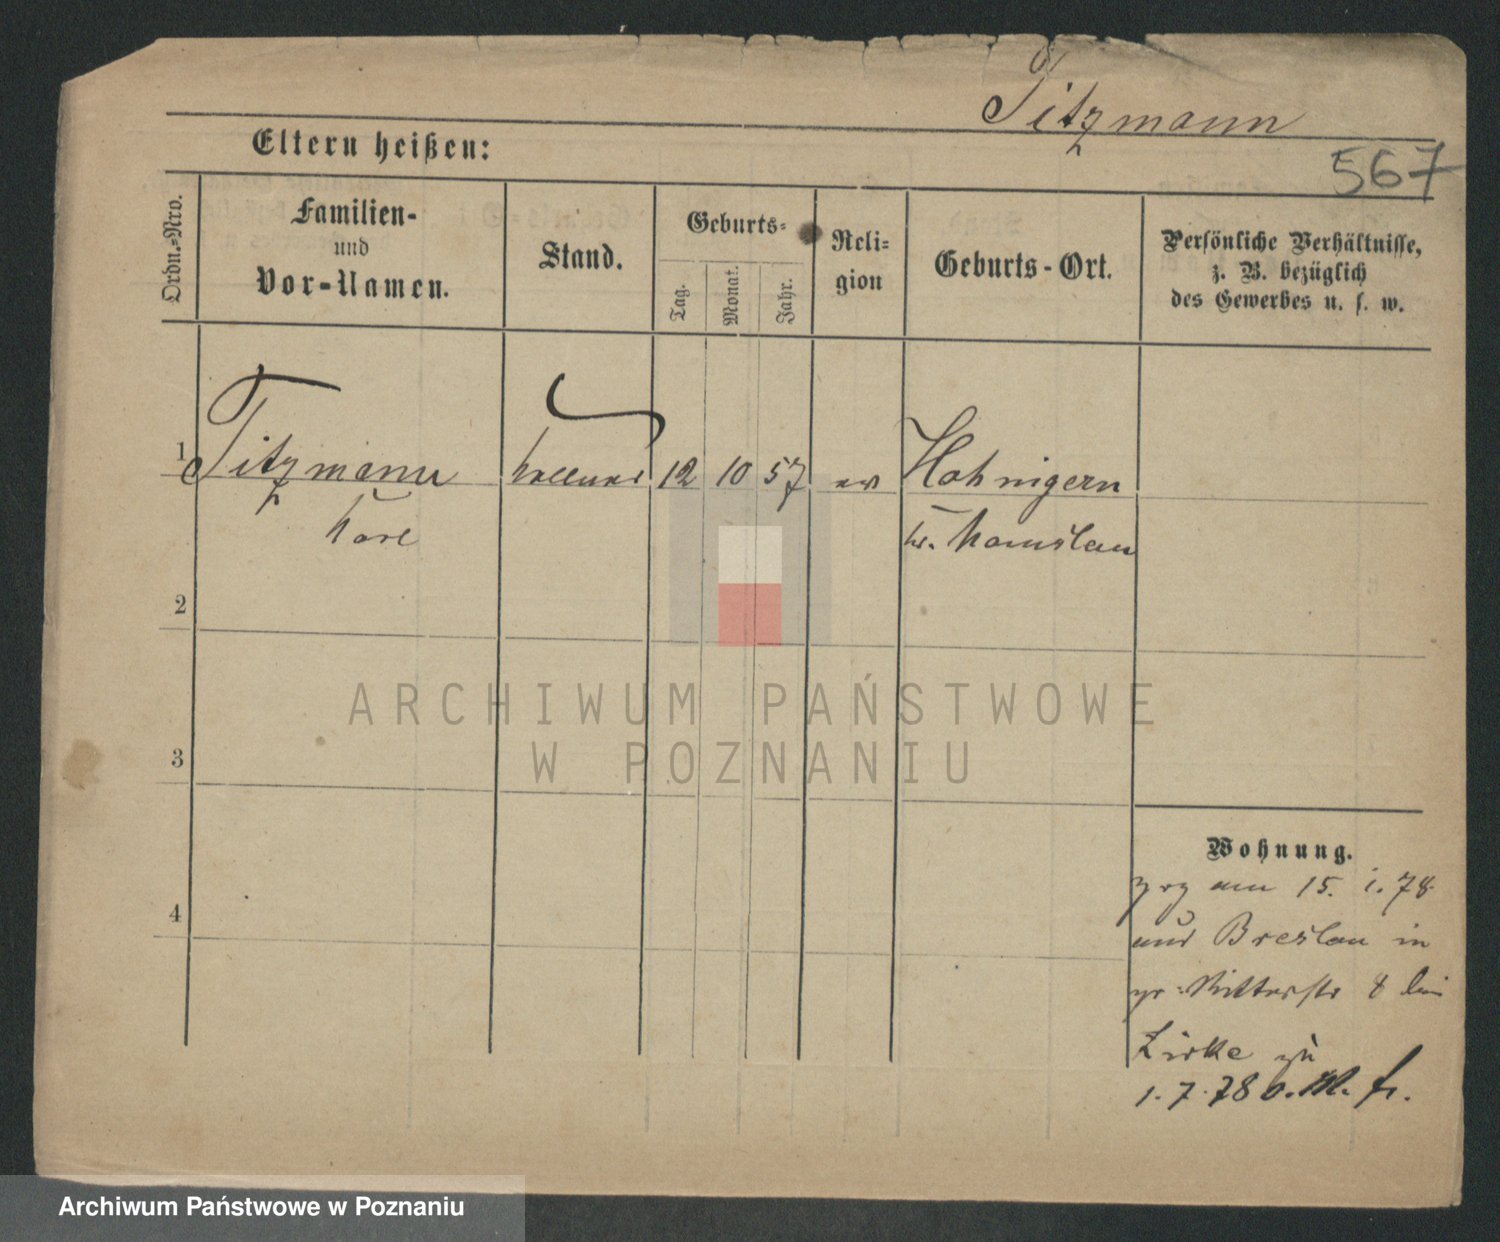 Titzmann
567
Eltern heißen:
Ordn.-Nro.
Familien-
und
Vor-Namen.
Stand.
Geburts-
Tag.
Monat.
Jahr.
Reli-
gion
Geburts-Ort.
Persönliche Verhältnisse,
z. B. bezüglich
des Gewerbes u. s. w.
1 Titzmann Kellner 12 10 57 ev Hohnigern
Karl Kr. Namslau
2
3
4
Wohnung.
zog am 15. 1. 78
aus Breslau in
gr. Ritterstr 8 bei
Zirke zu
1. 7. 78 o. M. fr.
ARCHIWUM PAŃSTWOWE
W POZNANIU
Archiwum Państwowe w Poznaniu